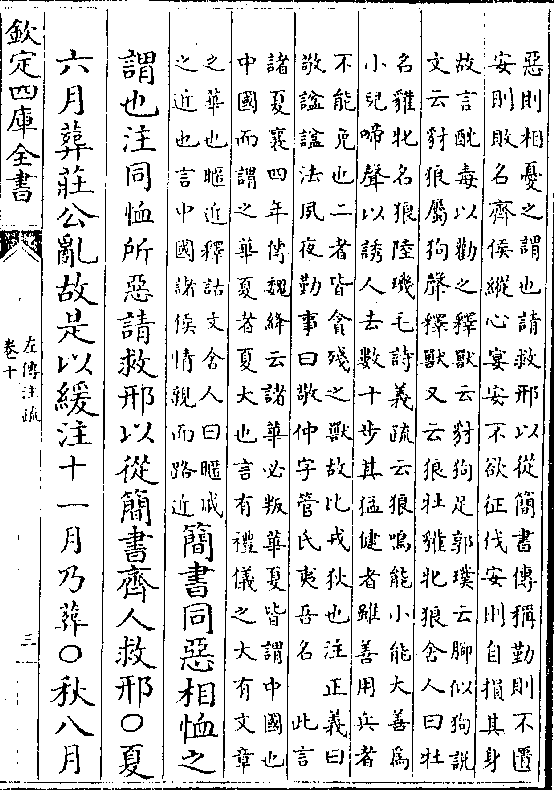 惡則相憂之謂也請救邢以從簡書傳稱勤則不匱
安則敗名齊侯縱心宴安不欲征伐安則自損其身
故言酖毒以勸之釋獸云豺狗足郭璞云腳似狗說
文云豺狼屬狗聲釋獸又云狼牡貛牝狼舍人曰牡
名貛牝名狼陸璣毛詩義疏云狼鳴能小能大善為
小兒啼聲以誘人去數十步其猛健者雖善用兵者
不能免也二者皆貪殘之獸故比戎狄也注正義曰
敬諡諡法夙夜勤事曰敬仲字管氏夷吾名　此言
諸夏襄四年傳魏絳云諸華必叛華夏皆謂中國也
中國而謂之華夏者夏大也言有禮儀之大有文章
之華也暱近釋詁文舍人曰暱戚
之近也言中國諸侯情親而路近
簡書同惡相恤之
謂也注同恤所惡請救邢以從簡書齊人救邢○夏
六月葬莊公亂故是以緩注十一月乃葬○秋八月
欽定四庫全書
左傳注疏
卷十
三